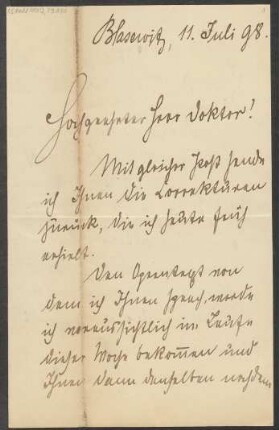 Blasewitz, 11. Juli 98.
Hochgeehrter Herr Doktor!
Mit gleicher Post sende
ich Ihnen die Correkturen
zurück, die ich heute früh
erhielt.
Den Operntext von
dem ich Ihnen sprach, werde
ich voraussichtlich im Laufe
dieser Woche bekommen und
Ihnen dann denselben nachdem